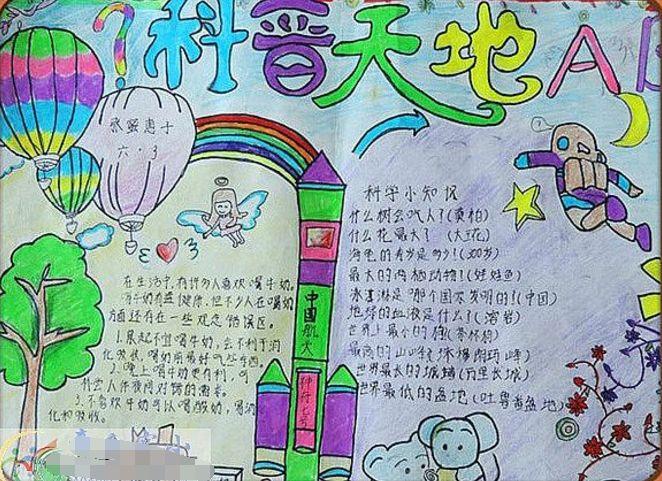 科普天地
六·三
科学小知识
在生活中,有许多人喜欢喝牛奶。
喝牛奶有益健康,但不少人在喝奶
方面还存在一些观念错误区。
1.晨起不宜喝牛奶,会不利于消
化吸收,喝奶前最好吃些东西。
2.晚上喝牛奶更有利,可
补充人体夜间对钙的需求。
3.不喜欢牛奶可以喝酸奶,喝消
化和吸收。
中國航天
神舟七号
什么树会吃人?(奠柏)
什么花最大?(大王花)
海龟的寿岁是多少?(300岁)
最大的两栖动物!(娃娃鱼)
冰淇淋是哪个国家发明的!(中国)
地球的血液是什么?(溶岩)
世界上最小的狗(茶杯狗)
最高的山峰?(珠穆朗玛峰)
世界最长的城墙(万里长城)
世界最低的盆地(吐鲁番盆地)